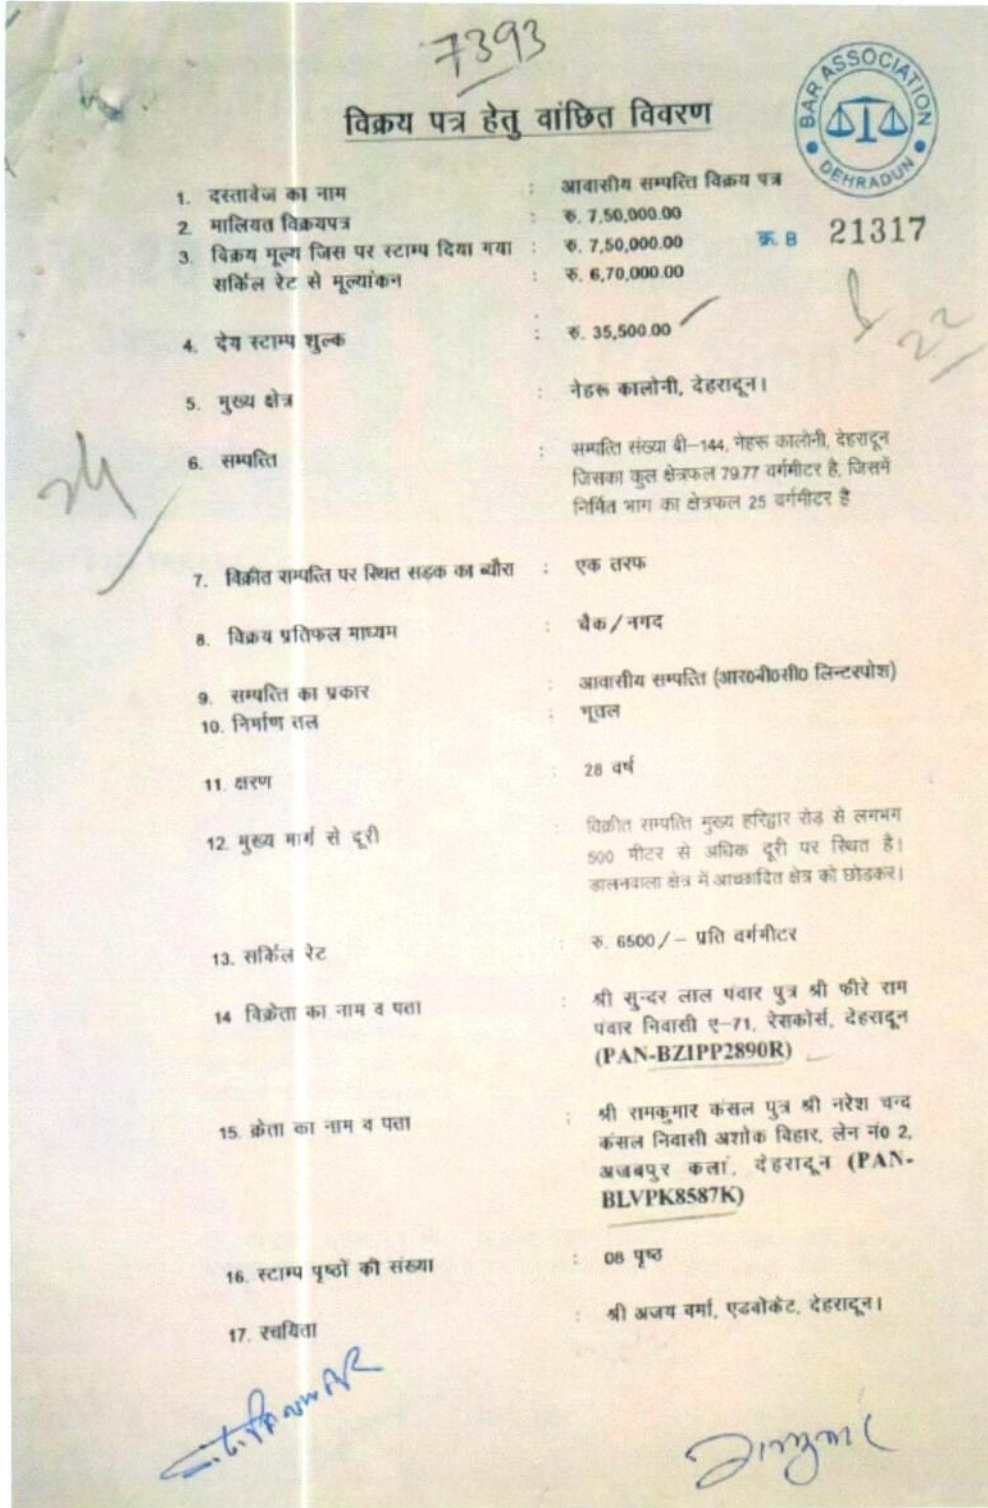 7393
BAR ASSOCIATION
DEHRADUN
विक्रय पत्र हेतु वांछित विवरण
1. दस्तावेज का नाम : आवासीय सम्पत्ति विक्रय पत्र
2. मालियत विक्रयपत्र : रु. 7,50,000.00
3. विक्रय मूल्य जिस पर स्टाम्प दिया गया : रु. 7,50,000.00
क्र. B 21317
सर्किल रेट से मूल्यांकन : रु. 6,70,000.00
4. देय स्टाम्प शुल्क : रु. 35,500.00
22
5. मुख्य क्षेत्र : नेहरू कालोनी, देहरादून।
6. सम्पत्ति : सम्पत्ति संख्या बी–144, नेहरू कालोनी, देहरादून
जिसका कुल क्षेत्रफल 79.77 वर्गमीटर है, जिसमें
निर्मित भाग का क्षेत्रफल 25 वर्गमीटर है
7. विक्रीत सम्पत्ति पर स्थित सड़क का ब्यौरा : एक तरफ
8. विक्रय प्रतिफल माध्यम : चैक/नगद
9. सम्पत्ति का प्रकार : आवासीय सम्पत्ति (आर0बी0सी0 लिन्टरपोश)
10. निर्माण तल : भूतल
11. क्षरण : 28 वर्ष
12. मुख्य मार्ग से दूरी : विक्रीत सम्पत्ति मुख्य हरिद्वार रोड़ से लगभग
500 मीटर से अधिक दूरी पर स्थित है।
डालनवाला क्षेत्र में आच्छादित क्षेत्र को छोडकर।
13. सर्किल रेट : रु. 6500/– प्रति वर्गमीटर
14 विक्रेता का नाम व पता : श्री सुन्दर लाल पंवार पुत्र श्री फीरे राम
पंवार निवासी ए–71, रेसकोर्स, देहरादून
(PAN-BZIPP2890R)
15. क्रेता का नाम व पता : श्री रामकुमार कंसल पुत्र श्री नरेश चन्द
कंसल निवासी अशोक विहार, लेन नं0 2,
अजबपुर कलां, देहरादून (PAN-
BLVPK8587K)
16. स्टाम्प पृष्ठों की संख्या : 08 पृष्ठ
17. रचयिता : श्री अजय वर्मा, एडवोकेट, देहरादून।